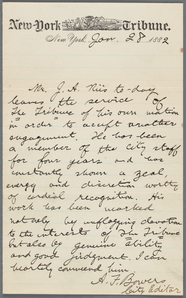 New-York Tribune.
New York, Jan. 28 1882
Mr. J. A. Riis to-day
leaves the service of
The Tribune of his own volition
in order to accept another
engagement. He has been
a member of the City staff
for four years and has
constantly shown a zeal,
energy and discretion worthy
of cordial recognition. His
work has been marked
not only by unflagging devotion
to the interests of The Tribune
but also by genuine ability
and good judgment. I can
heartily commend him.
A. F. Bowers
City Editor